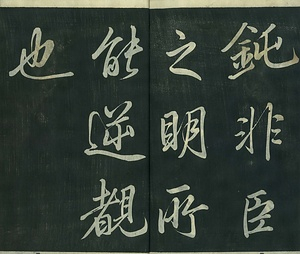 鈍非臣
之明所
能逆覩
也